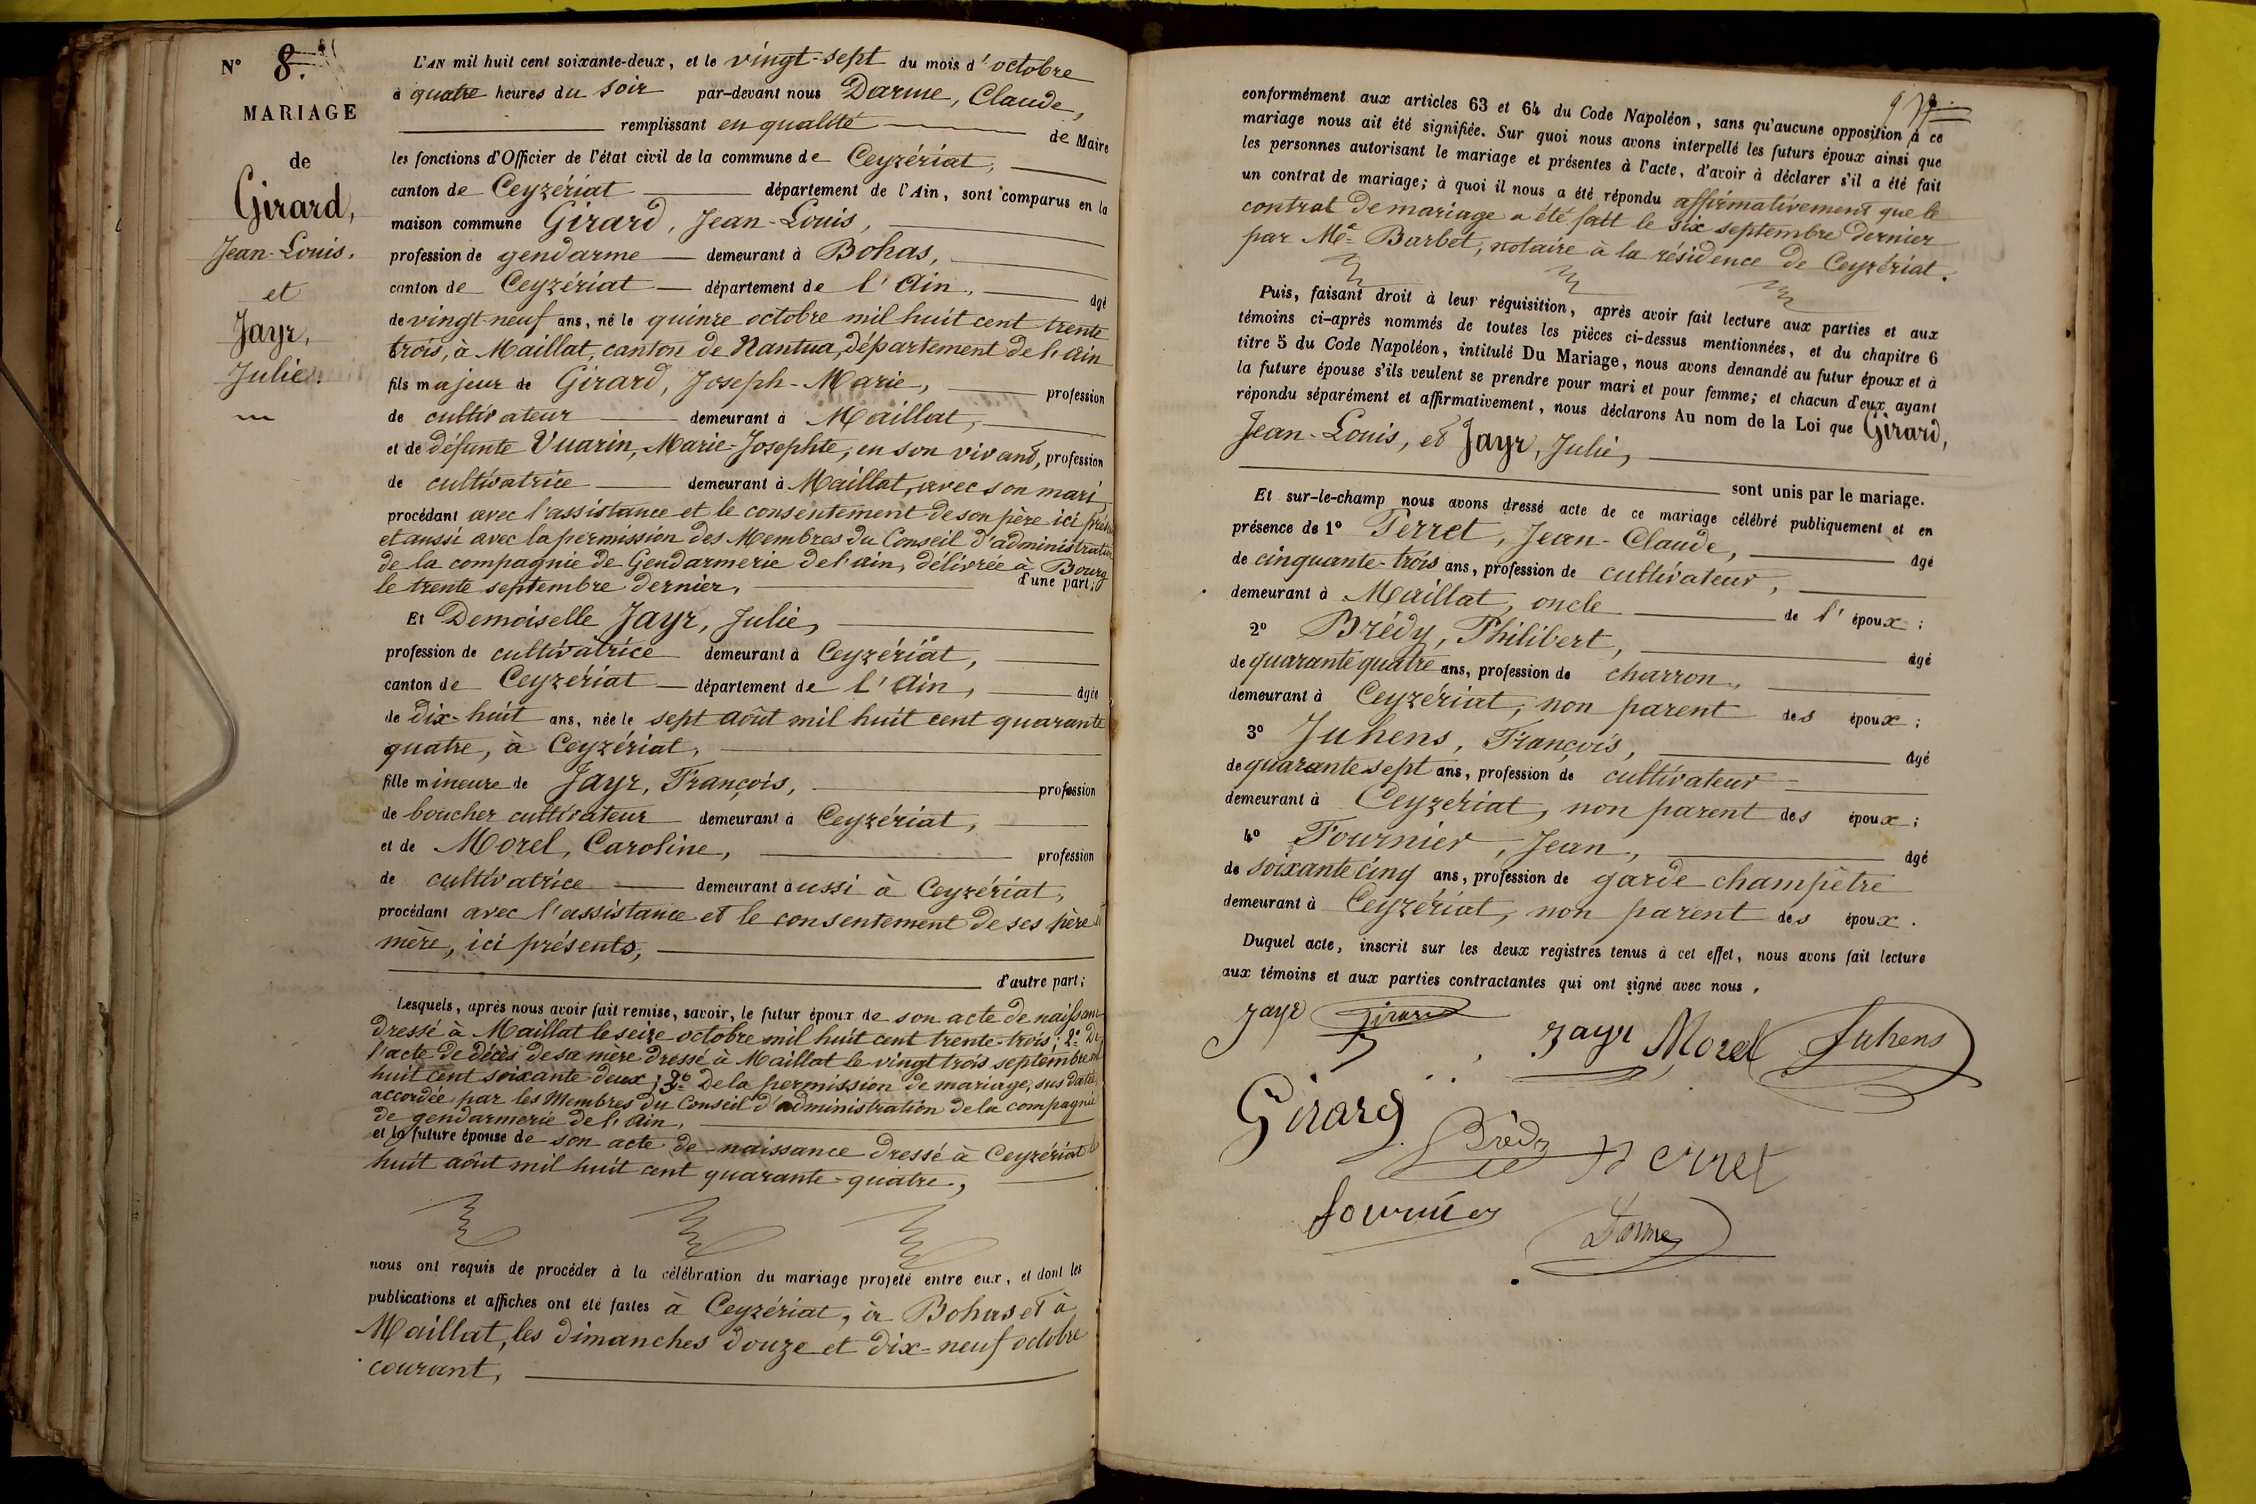 N° 8.
MARIAGE
de
Girard,
Jean-Louis.
et
Jayr,
Julie.
L'AN mil huit cent soixante-deux, et le vingt-sept du mois d'octobre
à quatre heures du soir par-devant nous Darme, Claude,
remplissant en qualité de Maire
les fonctions d'Officier de l'état civil de la commune de Ceyzériat,
canton de Ceyzériat département de l'Ain, sont comparus en la
maison commune Girard, Jean-Louis,
profession de gendarme demeurant à Bohas,
canton de Ceyzériat département de l'Ain, âgé
de vingt-neuf ans, né le quinze octobre mil huit cent trente
trois, à Maillat, canton de Nantua, département de l'ain
fils majeur de Girard, Joseph-Marie, profession
de cultivateur demeurant à Maillat,
et de défunte Vuarin, Marie-Josephte, en son vivant, profession
de cultivatrice demeurant à Maillat, avec son mari
procédant avec l'assistance et le consentement de son père ici présent
et aussi avec la permission des Membres du Conseil d'administration
de la compagnie de Gendarmerie de l'ain, délivrée à Bourg
le trente septembre dernier, d'une part;
Et Demoiselle Jayr, Julie,
profession de cultivatrice demeurant à Ceyzériat,
canton de Ceyzériat département de l'Ain, âgée
de dix-huit ans, née le sept août mil huit cent quarante
quatre, à Ceyzériat,
fille mineure de Jayr, François, profession
de boucher cultivateur demeurant à Ceyzériat,
et de Morel, Caroline, profession
de cultivatrice demeurant aussi à Ceyzériat,
procédant avec l'assistance et le consentement de ses père et
mère, ici présents,
d'autre part;
Lesquels, après nous avoir fait remise, savoir, le futur époux de son acte de naissance
dressé à Maillat le seize octobre mil huit cent trente-trois; 2° De
l'acte de décès de sa mère dressé à Maillat le vingt trois septembre mil
huit cent soixante deux; 3° De la permission de mariage, sus datée,
accordée par les Membres du Conseil d'administration de la compagnie
de gendarmerie de l'Ain,
et la future épouse de son acte de naissance dressé à Ceyzériat le
huit août mil huit cent quarante-quatre,
nous ont requis de procéder à la célébration du mariage projeté entre eux, et dont les
publications et affiches ont été faites à Ceyzériat, à Bohas et à
Maillat, les dimanches douze et dix-neuf octobre
courant,
conformément aux articles 63 et 64 du Code Napoléon, sans qu'aucune opposition à ce
mariage nous ait été signifiée. Sur quoi nous avons interpellé les futurs époux ainsi que
les personnes autorisant le mariage et présentes à l'acte, d'avoir à déclarer s'il a été fait
un contrat de mariage; à quoi il nous a été répondu affirmativement que le
contrat de mariage a été fait le six septembre dernier
par Me Barbet, notaire à la résidence de Ceyzériat.
Puis, faisant droit à leur réquisition, après avoir fait lecture aux parties et aux
témoins ci-après nommés de toutes les pièces ci-dessus mentionnées, et du chapitre 6
titre 5 du Code Napoléon, intitulé Du Mariage, nous avons demandé au futur époux et à
la future épouse s'ils veulent se prendre pour mari et pour femme; et chacun d'eux ayant
répondu séparément et affirmativement, nous déclarons Au nom de la Loi que Girard,
Jean-Louis, et Jayr, Julie,
sont unis par le mariage.
Et sur-le-champ nous avons dressé acte de ce mariage célébré publiquement et en
présence de 1° Perret, Jean-Claude, âgé
de cinquante-trois ans, profession de cultivateur,
demeurant à Maillat, oncle de l'époux;
2° Brédy, Philibert, âgé
de quarante quatre ans, profession de charron,
demeurant à Ceyzériat, non parent des époux;
3° Juhens, François, âgé
de quarante sept ans, profession de cultivateur
demeurant à Ceyzériat, non parent des époux;
4° Fournier, Jean, âgé
de soixante cinq ans, profession de garde champêtre
demeurant à Ceyzériat, non parent des époux.
Duquel acte, inscrit sur les deux registres tenus à cet effet, nous avons fait lecture
aux témoins et aux parties contractantes qui ont signé avec nous.
Jayr Girard Jayr Morel Juhens
Girard Brédy Perret
fournier Darme